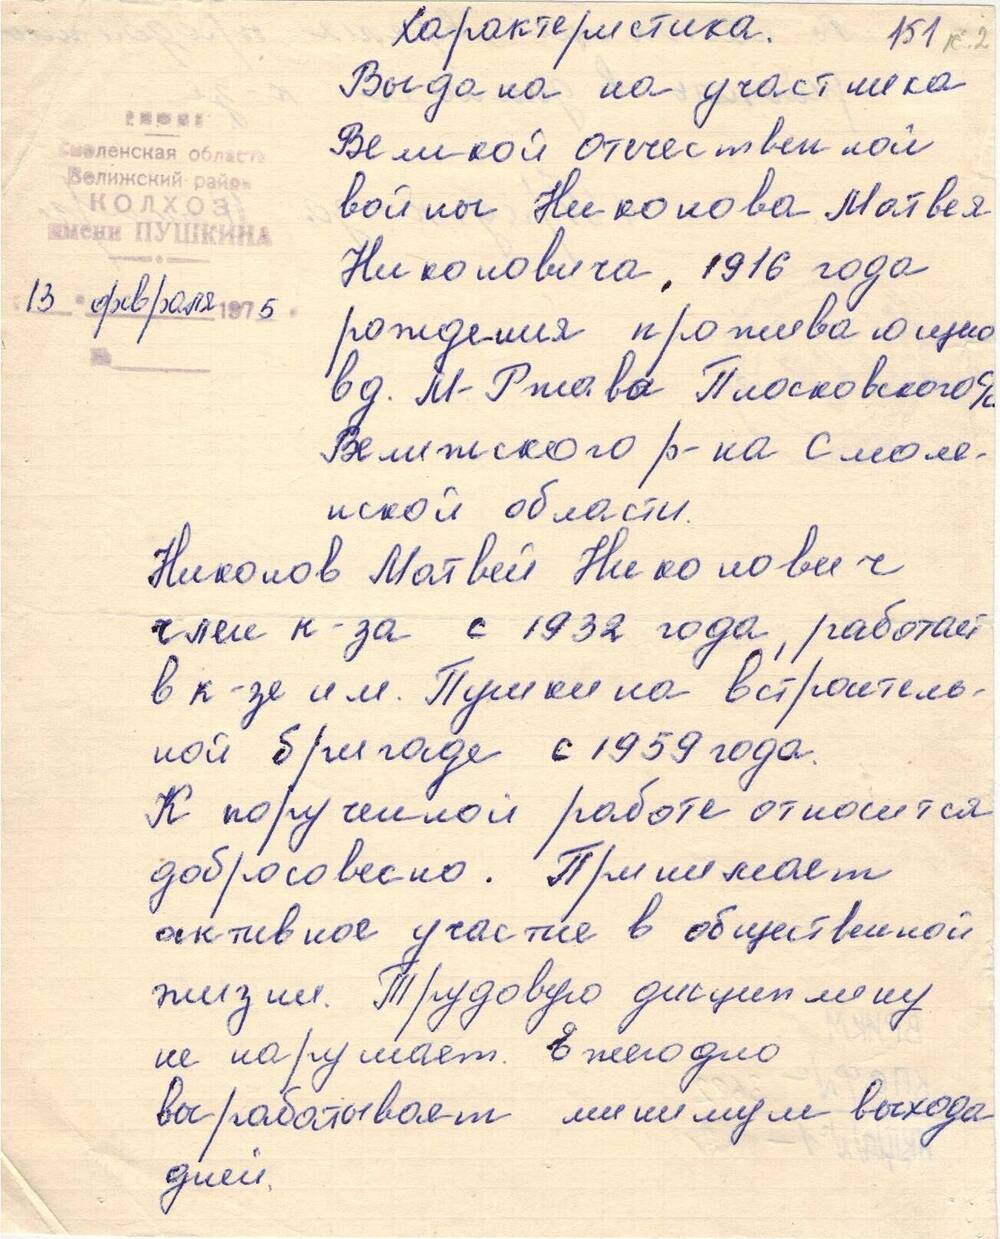 Характеристика.
151 к.2
Смоленская область
Велижский район
КОЛХОЗ
имени ПУШКИНА
13 февраля 1975
№
Выдана на участника
Великой отечественной
войны Николова Матвея
Николовича, 1916 года
рождения проживающего
в д. М-Ржава Плосковского с/с
Велижского р-на Смоле-
нской области.
Николов Матвей Николович
член к-за с 1932 года, работает
в к-зе им. Пушкина в строитель-
ной бригаде с 1959 года.
К порученной работе относится
добросовесно. Принимает
активное участие в общественной
жизни. Трудовую дисциплину
не нарушает. Ежегодно
вырабатывает минимум выхода
дней.